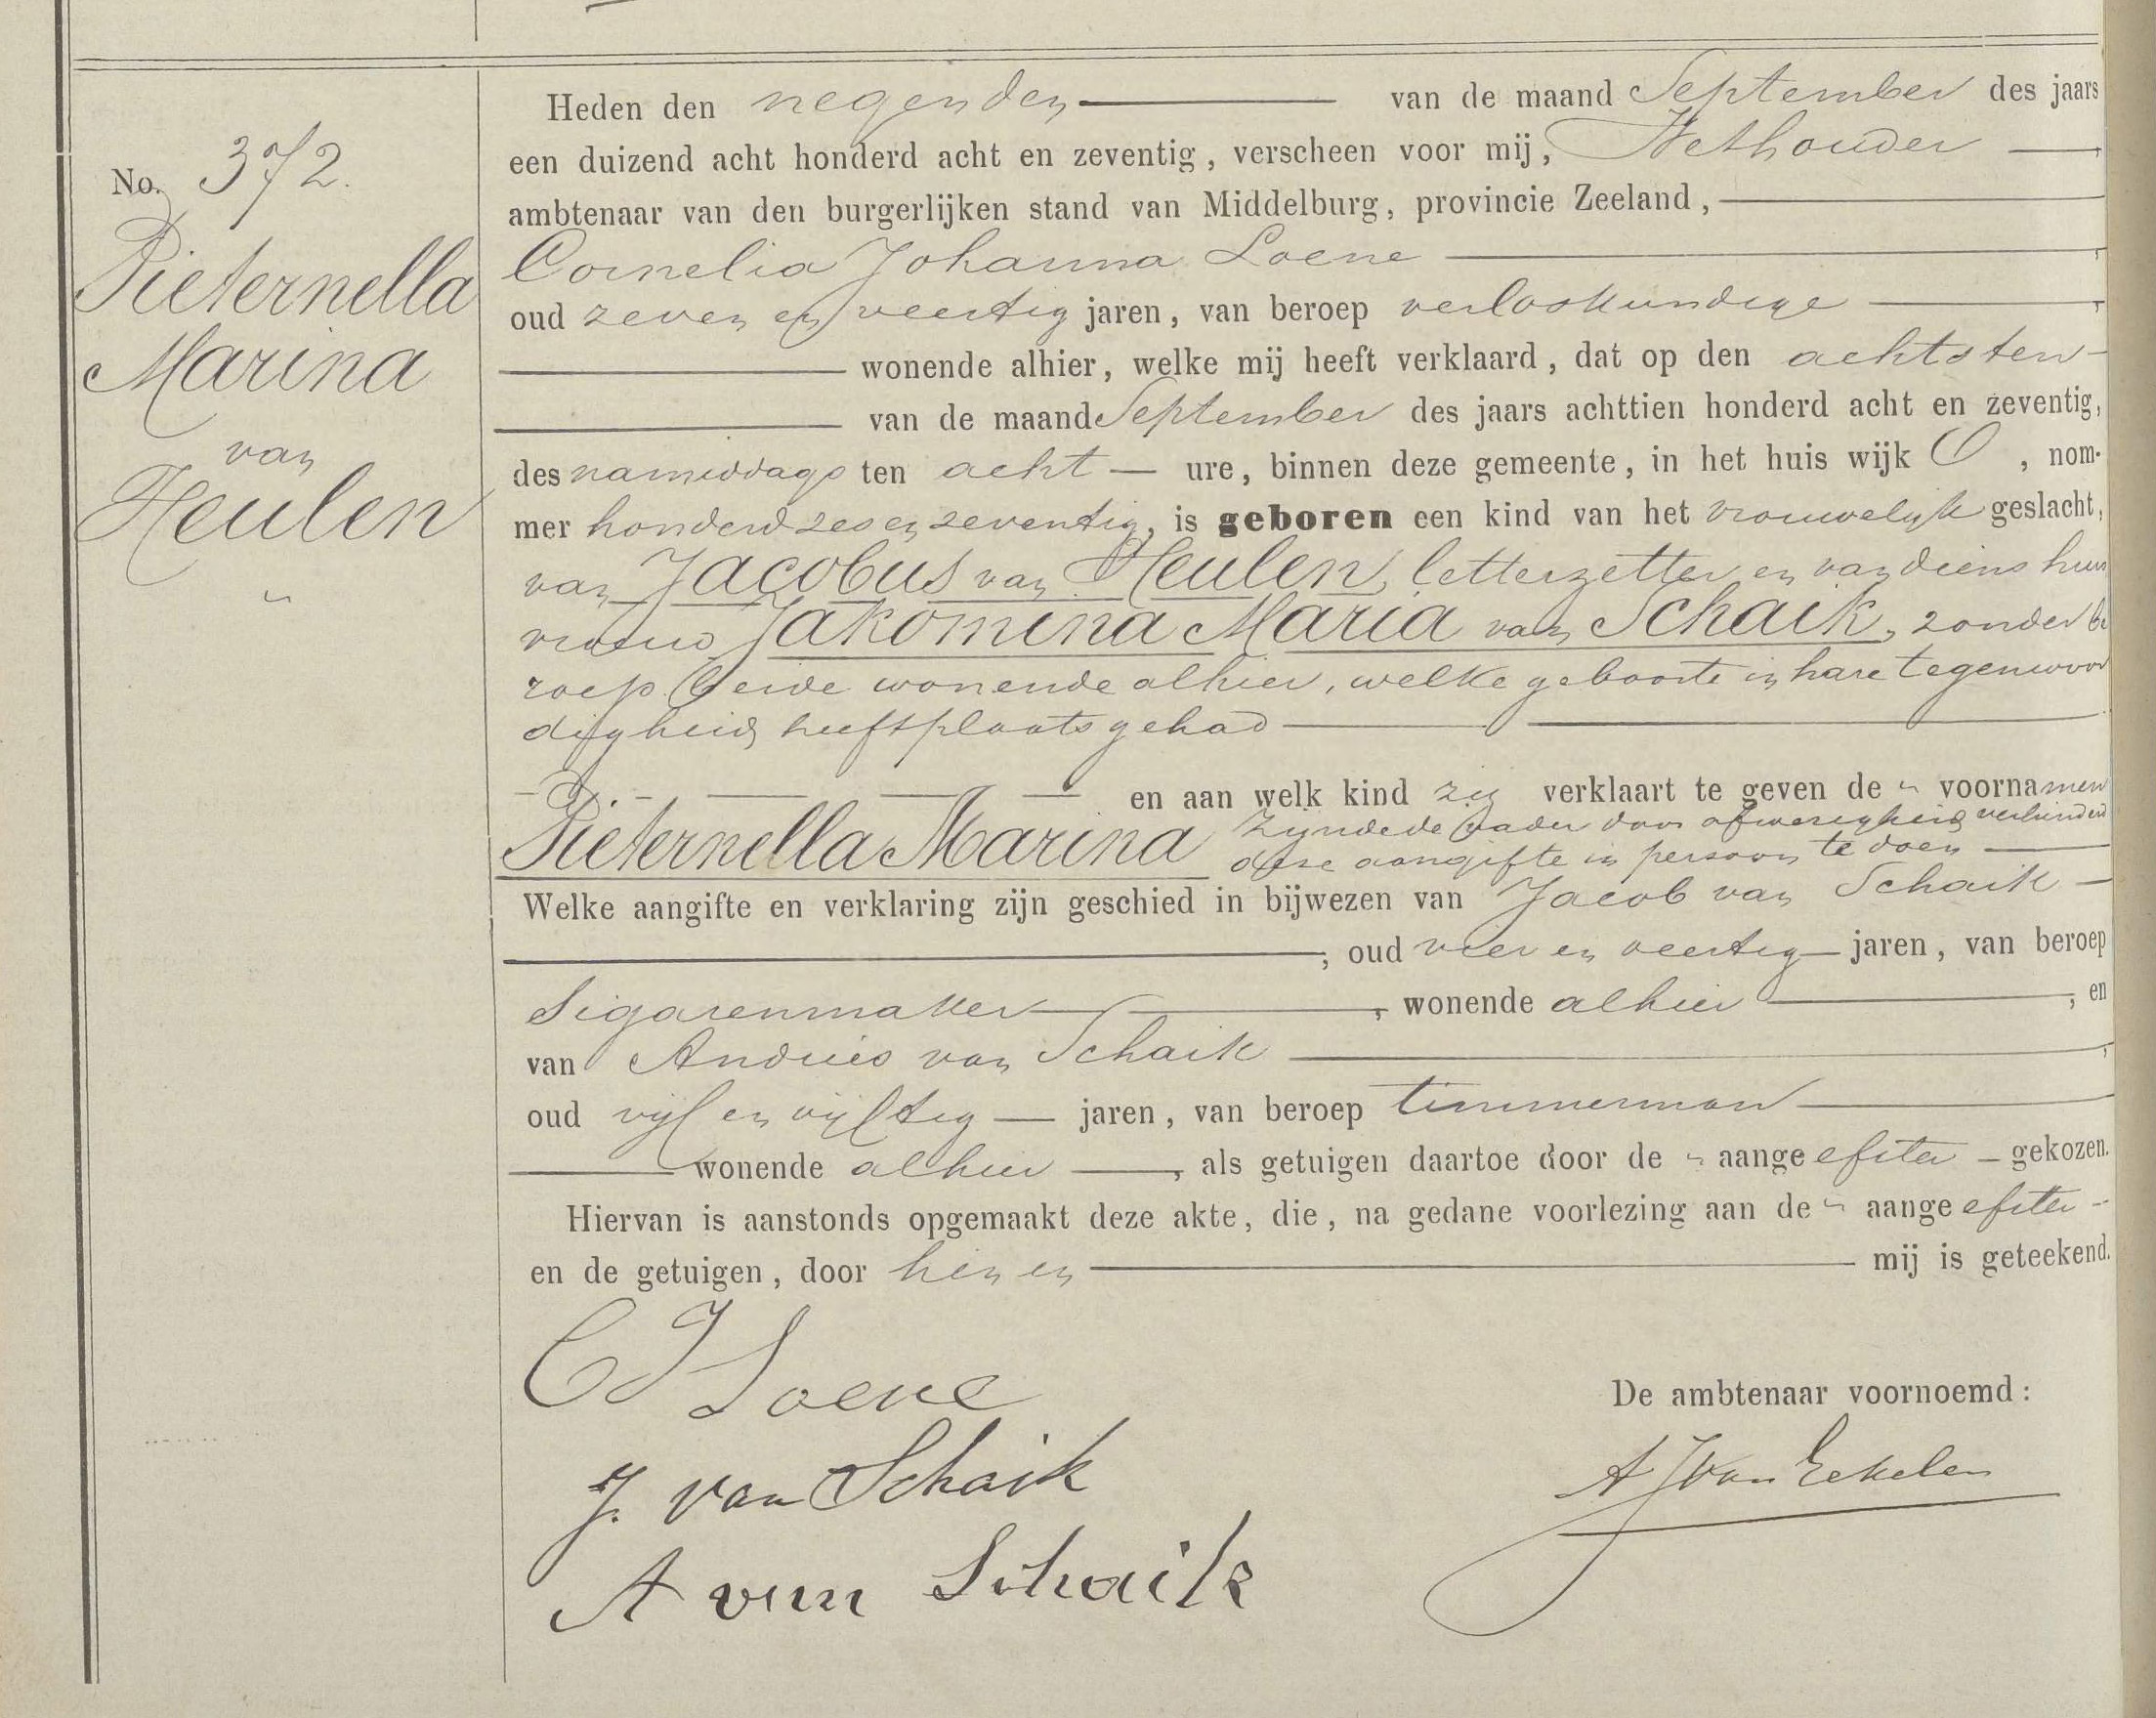 No. 372.
Pieternella
Marina
van
Heulen
Heden den negenden van de maand September des jaars
een duizend acht honderd acht en zeventig, verscheen voor mij, Wethouder
ambtenaar van den burgerlijken stand van Middelburg, provincie Zeeland,
Cornelia Johanna Loene
oud zeven en veertig jaren, van beroep verloskundige,
wonende alhier, welke mij heeft verklaard, dat op den achtsten
van de maand September des jaars achttien honderd acht en zeventig,
des namiddags ten acht ure, binnen deze gemeente, in het huis wijk O, nom-
mer honderd zes en zeventig, is geboren een kind van het vrouwelijk geslacht,
van Jacobus van Heulen, letterzetter, en van diens huis
vrouw Jakomina Maria van Schaik, zonder be
roep beide wonende alhier, welke geboorte in hare tegenwoor
digheid heeft plaats gehad
en aan welk kind zij verklaart te geven de voornamen
Pieternella Marina zijnde de vader door afwezigheid verhinderd
deze aangifte in persoon te doen
Welke aangifte en verklaring zijn geschied in bijwezen van Jacob van Schaik
, oud vier en veertig jaren, van beroep
Sigarenmaker, wonende alhier, en
van Andries van Schaik,
oud vijf en vijftig jaren, van beroep timmerman
wonende alhier, als getuigen daartoe door de aangeefster gekozen.
Hiervan is aanstonds opgemaakt deze akte, die, na gedane voorlezing aan de aangeefster
en de getuigen, door hen en mij is geteekend.
C J Loene
De ambtenaar voornoemd:
J. van Schaik
A J van Eekelen
A van Schaik